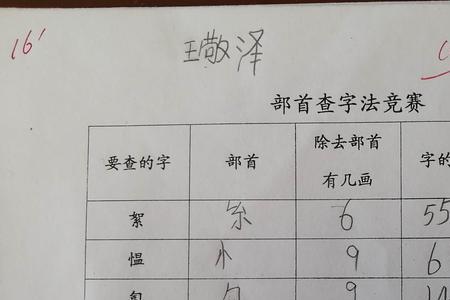 16'
王敬泽
部首查字法竞赛
要查的字 部首 除去部首有几画 字的
絮 糸 6 55
愠 忄 9 6
匐 勹 9